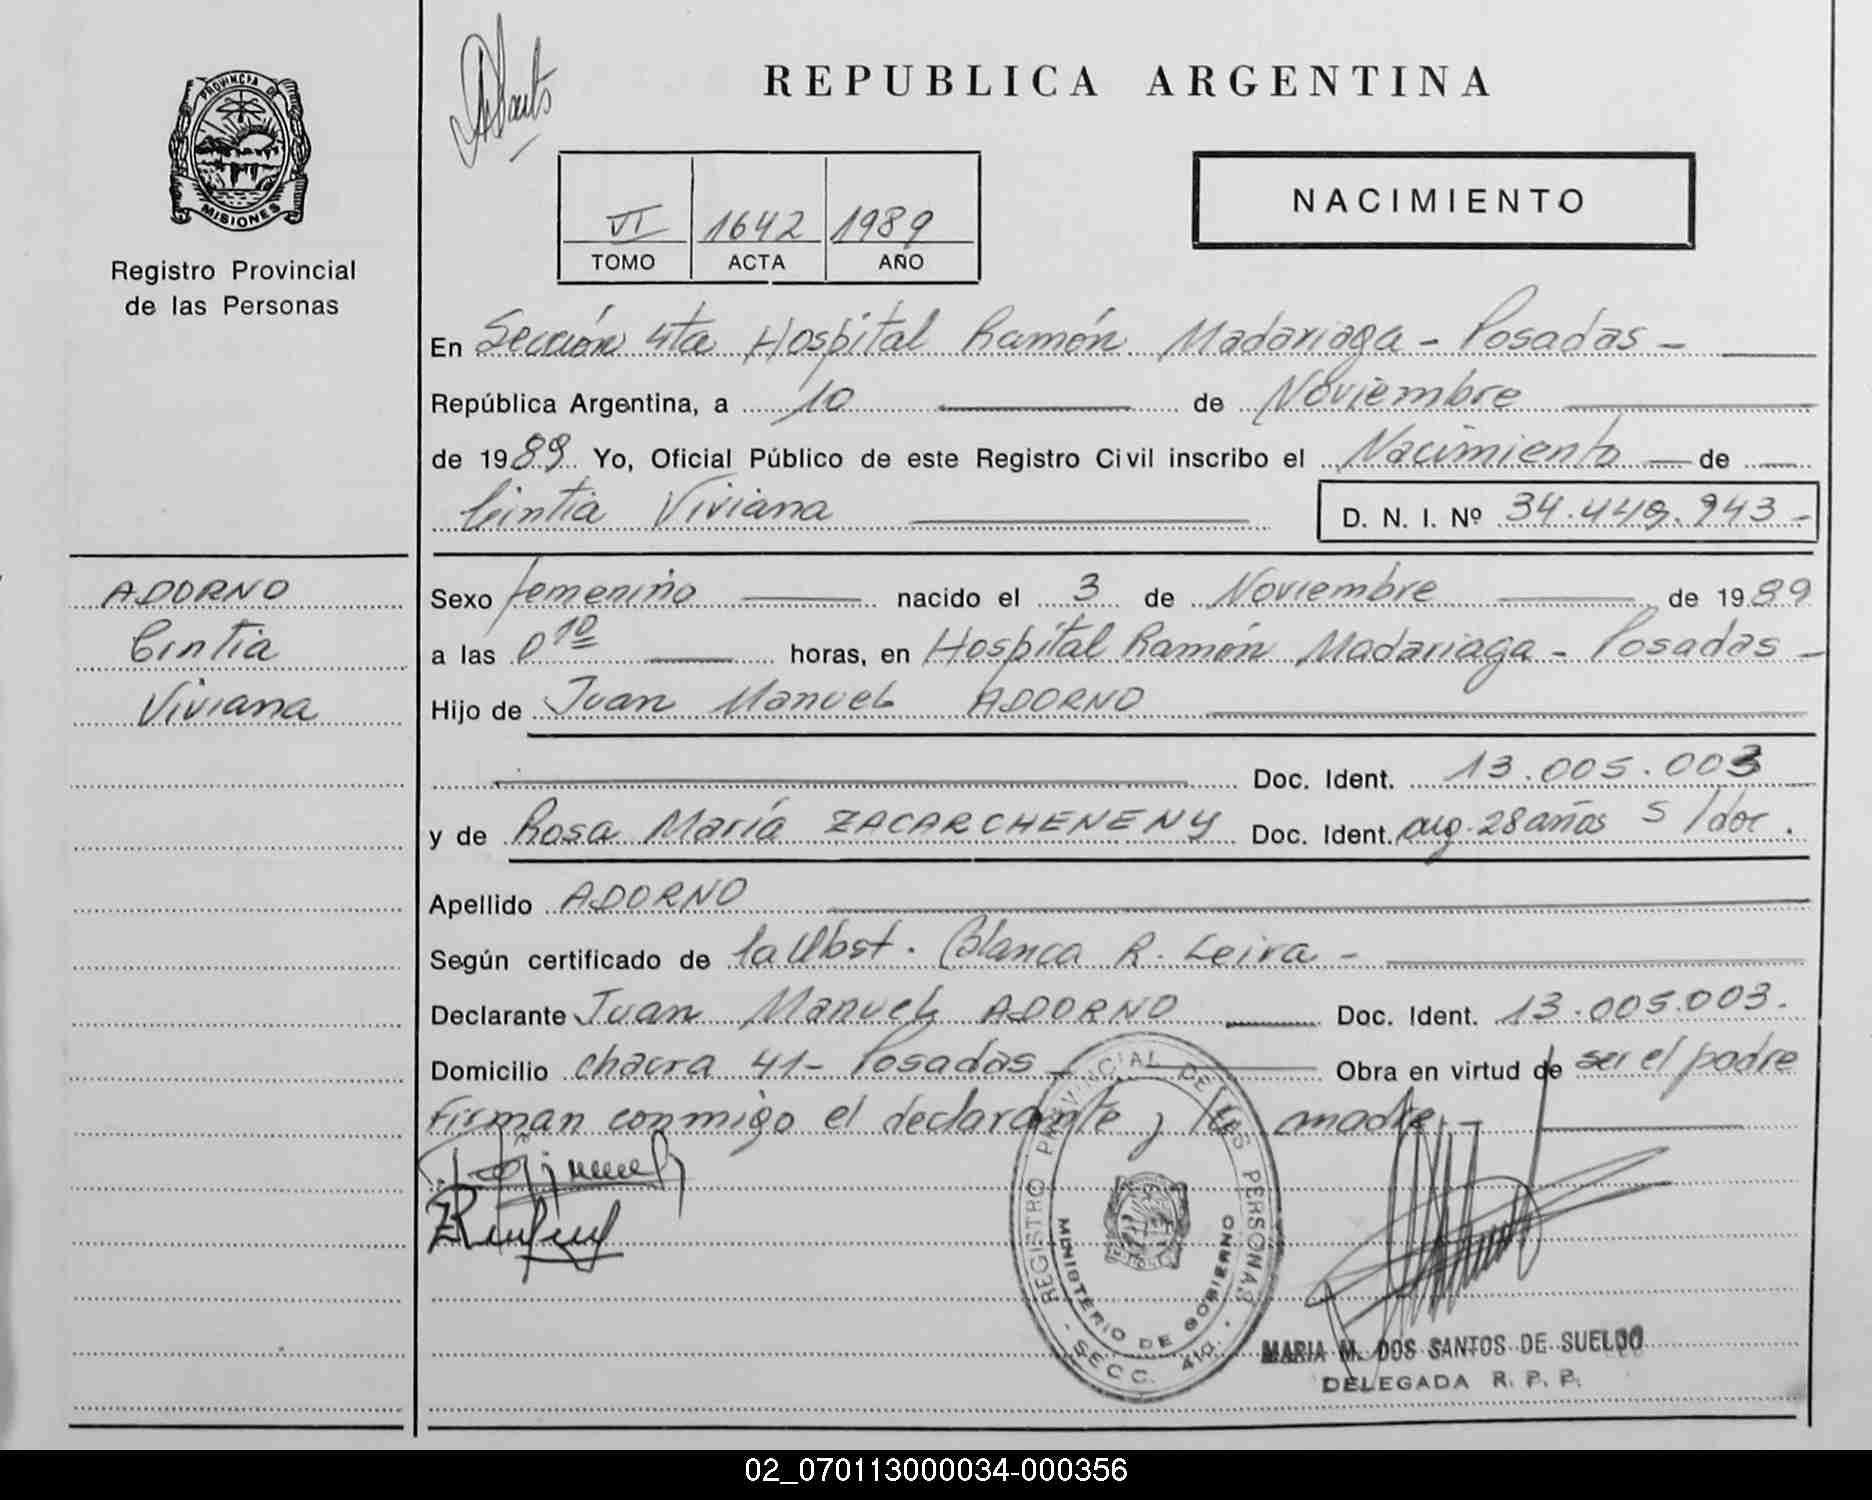 REPUBLICA ARGENTINA
PROVINCIA DE MISIONES
Registro Provincial
de las Personas
VI 1642 1989
TOMO ACTA AÑO
NACIMIENTO
En Sección 4ta Hospital Ramón Madariaga - Posadas -
República Argentina, a 10 de Noviembre
de 1989 Yo, Oficial Público de este Registro Civil inscribo el Nacimiento de
Cintia Viviana D. N. I. Nº 34.449.943-
ADORNO
Cintia
Viviana
Sexo femenino nacido el 3 de Noviembre de 1989
a las 0 10 horas, en Hospital Ramón Madariaga - Posadas -
Hijo de Juan Manuel ADORNO
Doc. Ident. 13.005.003
y de Rosa María ZACARCHENENY Doc. Ident. arg. 28 años s/doc.
Apellido ADORNO
Según certificado de la Obst. Blanca R. Leiva -
Declarante Juan Manuel ADORNO Doc. Ident. 13.005.003.
Domicilio chacra 41- Posadas - Obra en virtud de ser el padre
Firman conmigo el declarante y la madre -
REGISTRO PROVINCIAL DE LAS PERSONAS
MINISTERIO DE GOBIERNO
- SECC. 4ta. -
MARIA M. DOS SANTOS DE SUELDO
DELEGADA R. P. P.
02_070113000034-000356